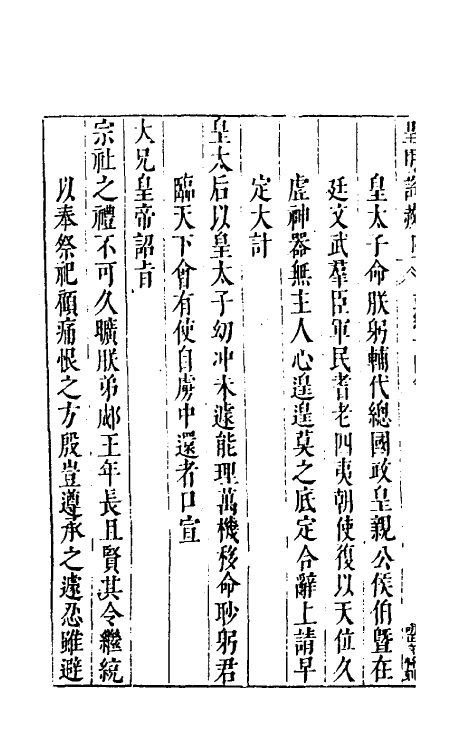 皇明詔
皇太子命朕躬輔代總國政皇親公侯伯暨在
廷文武羣臣軍民耆老四夷朝使復以天位久
虛神器無主人心遑遑莫之底定合辭上請早
定大計
皇太后以皇太子幼冲未遽能理萬機移命眇躬君
臨天下會有使自虜中還者口宣
大兄皇帝詔旨
宗社之禮不可久曠朕弟郕王年長且賢其令繼統
以奉祭祀顧痛恨之方殷豈遵承之遽忍雖避